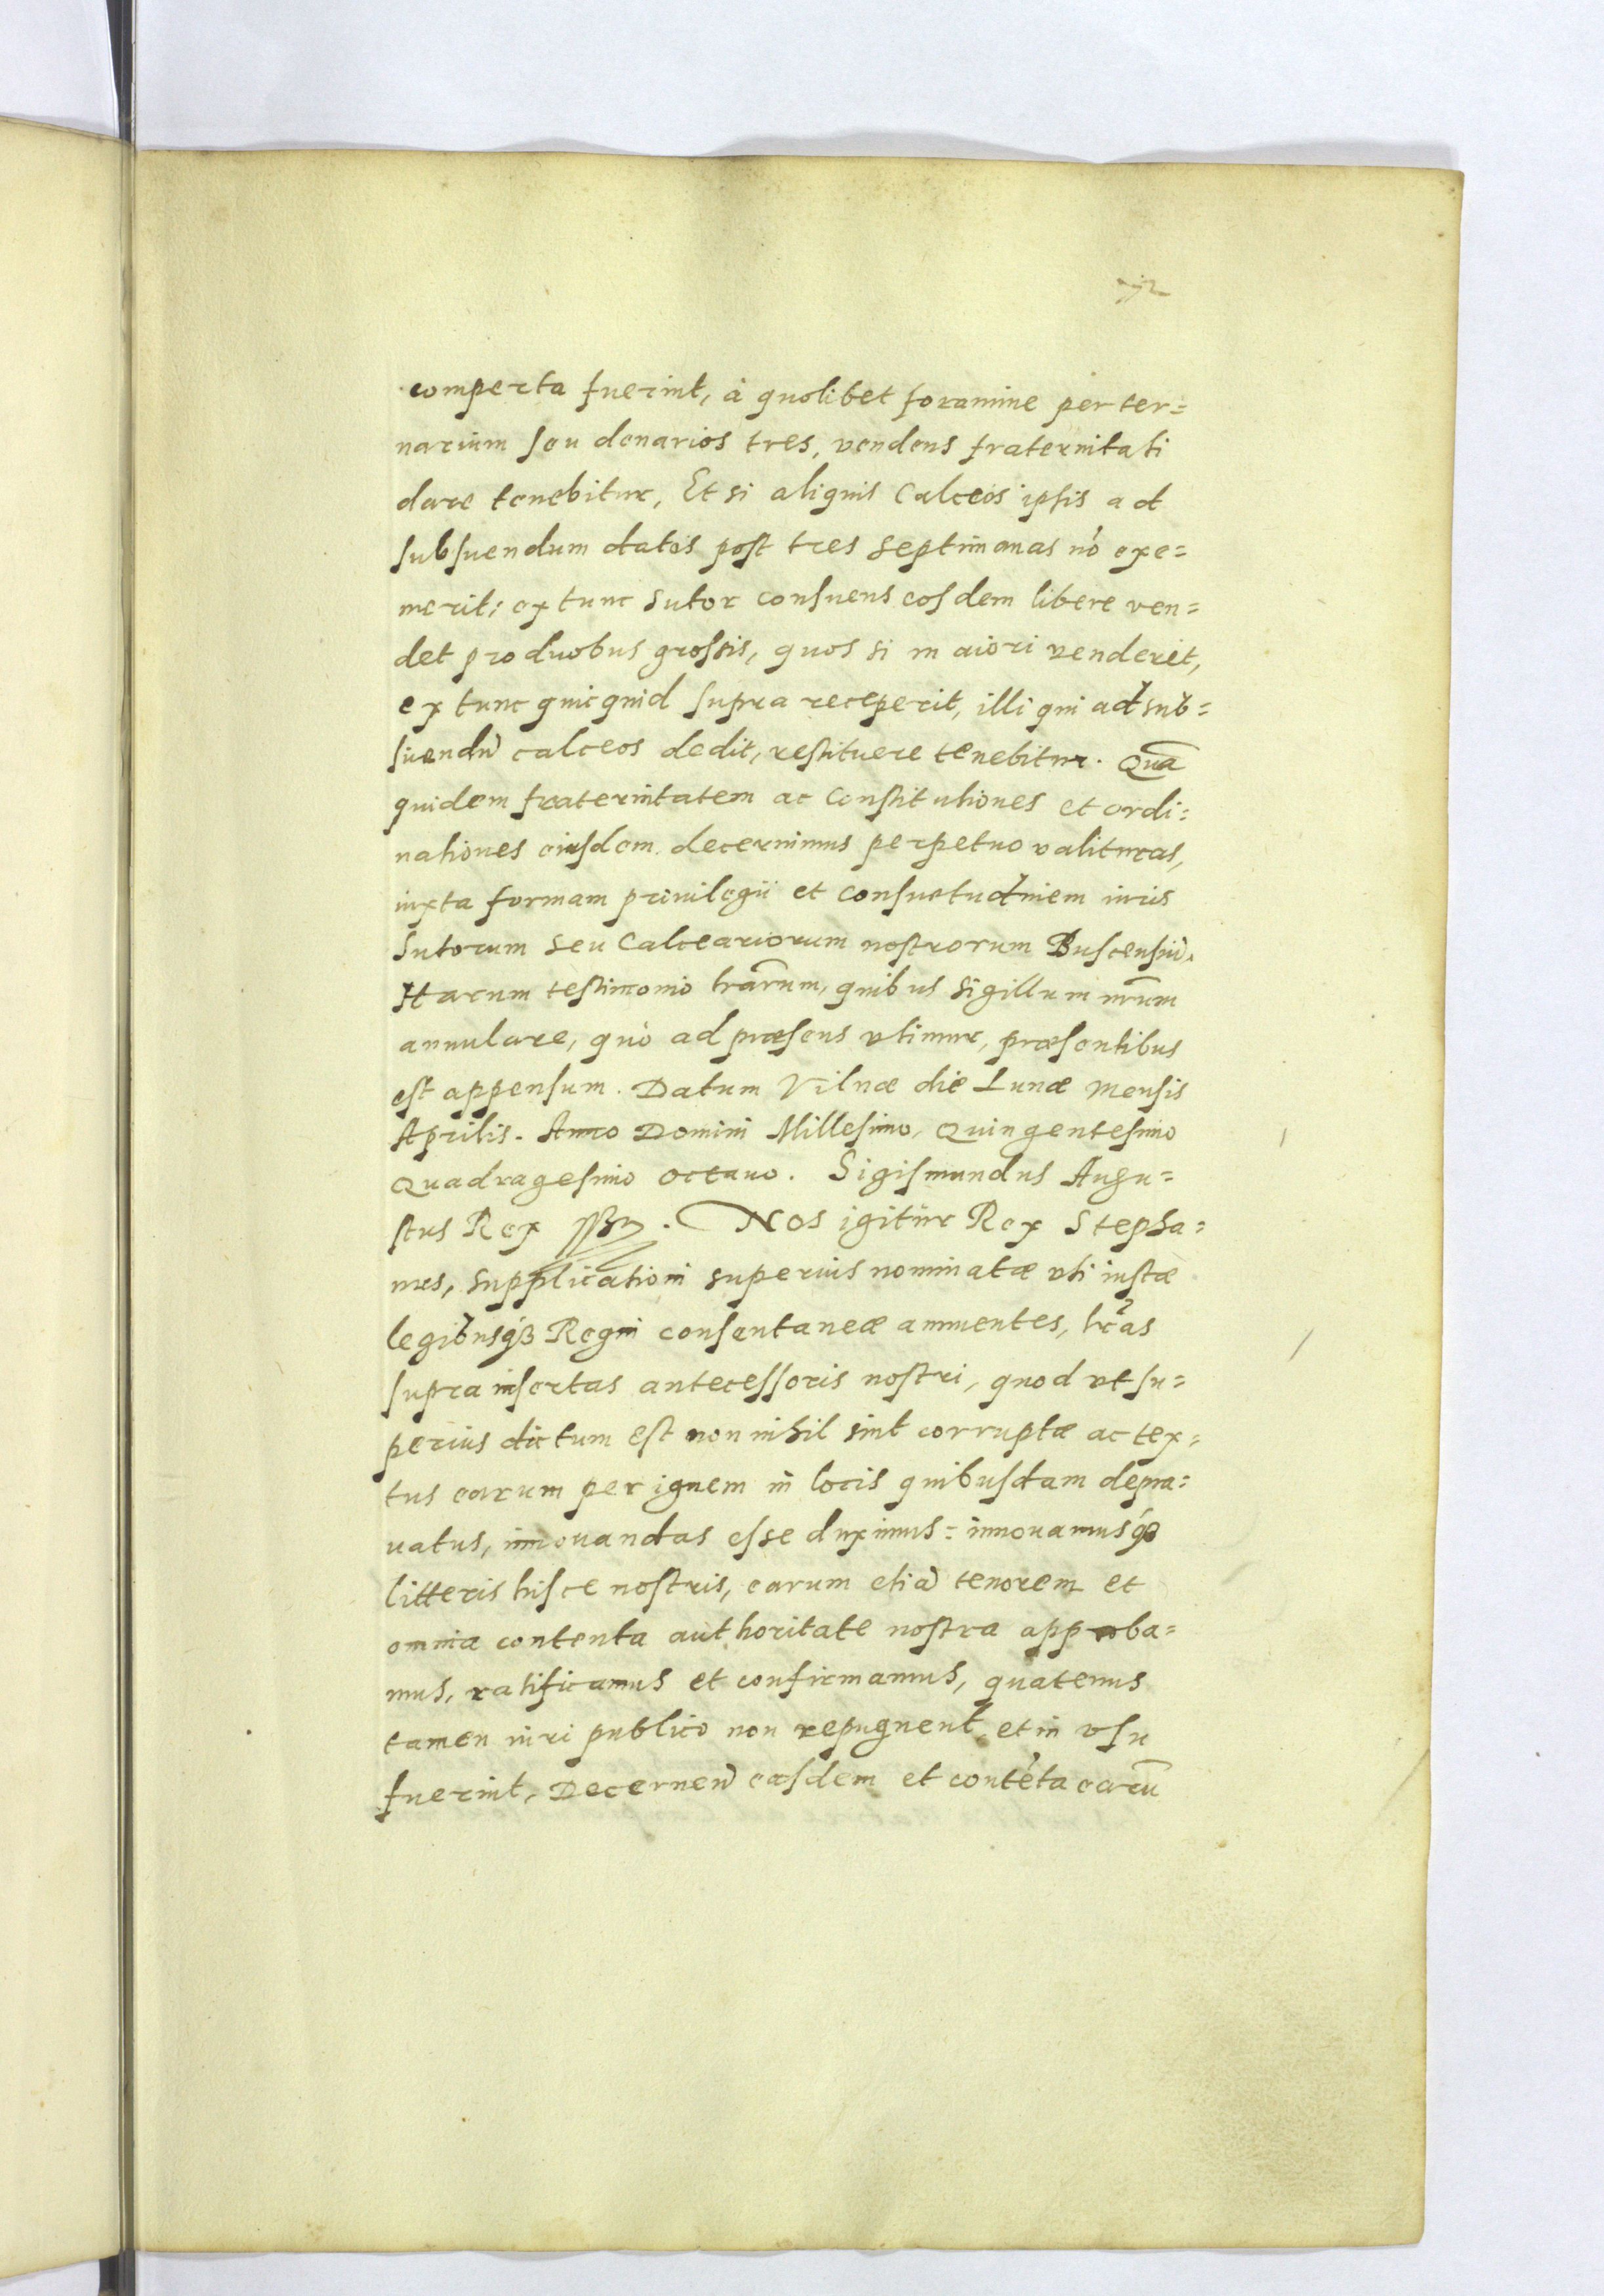 comperta fuerint, à quolibet foramine per ter=
narium seu denarios tres, vendens fraternitati
dare tenebitur, Et si aliquis Calceos ipsis ad
subsuendum datos post tres septimanas nõ exe=
merit; extunc sutor consuens eosdem libere ven=
det pro duobus grossis, quos si maiori venderet,
extunc quicquid supra receperit, illi qui ad sub=
suendũ calceos dedit, restituere tenebitur. Quã
quidem fraternitatem ac Constitutiones et ordi=
nationes eiusdem decernimus perpetuo valituras,
iuxta formam priuilegii et consuetudinem iuris
Sutorum seu Calceariorum nostrorum Buscensiũ.
Harum testimonio lrãrum, quibus sigillum nrũm
annulare, quò ad præsens vtimur, præsentibus
est appensum. Datum Vilnæ die Lunæ mensis
Aprilis. Anno Domini Millesimo, Quingentesimo
Quadragesimo octauo. Sigismundus Augu=
stus Rex sst. Nos igitur Rex Stepha=
nus, supplicationi superius nominatæ vti iustæ
legibusqꝫ Regni consentaneæ annuentes, lr̃as
supra insertas antecessoris nostri, quod vt su=
perius dictum est nonnihil sint corruptæ ac tex=
tus earum per ignem in locis quibusdam depra=
uatus, innouandas esse duximus= innouamusqꝫ
litteris hisce nostris, earum etiã tenorem et
omnia contenta authoritate nostra approba=
mus, ratificamus et confirmamus, quatenus
tamen iuri publico non repugnent et in vsu
fuerint, Decernen̄ easdem et contẽta earũ